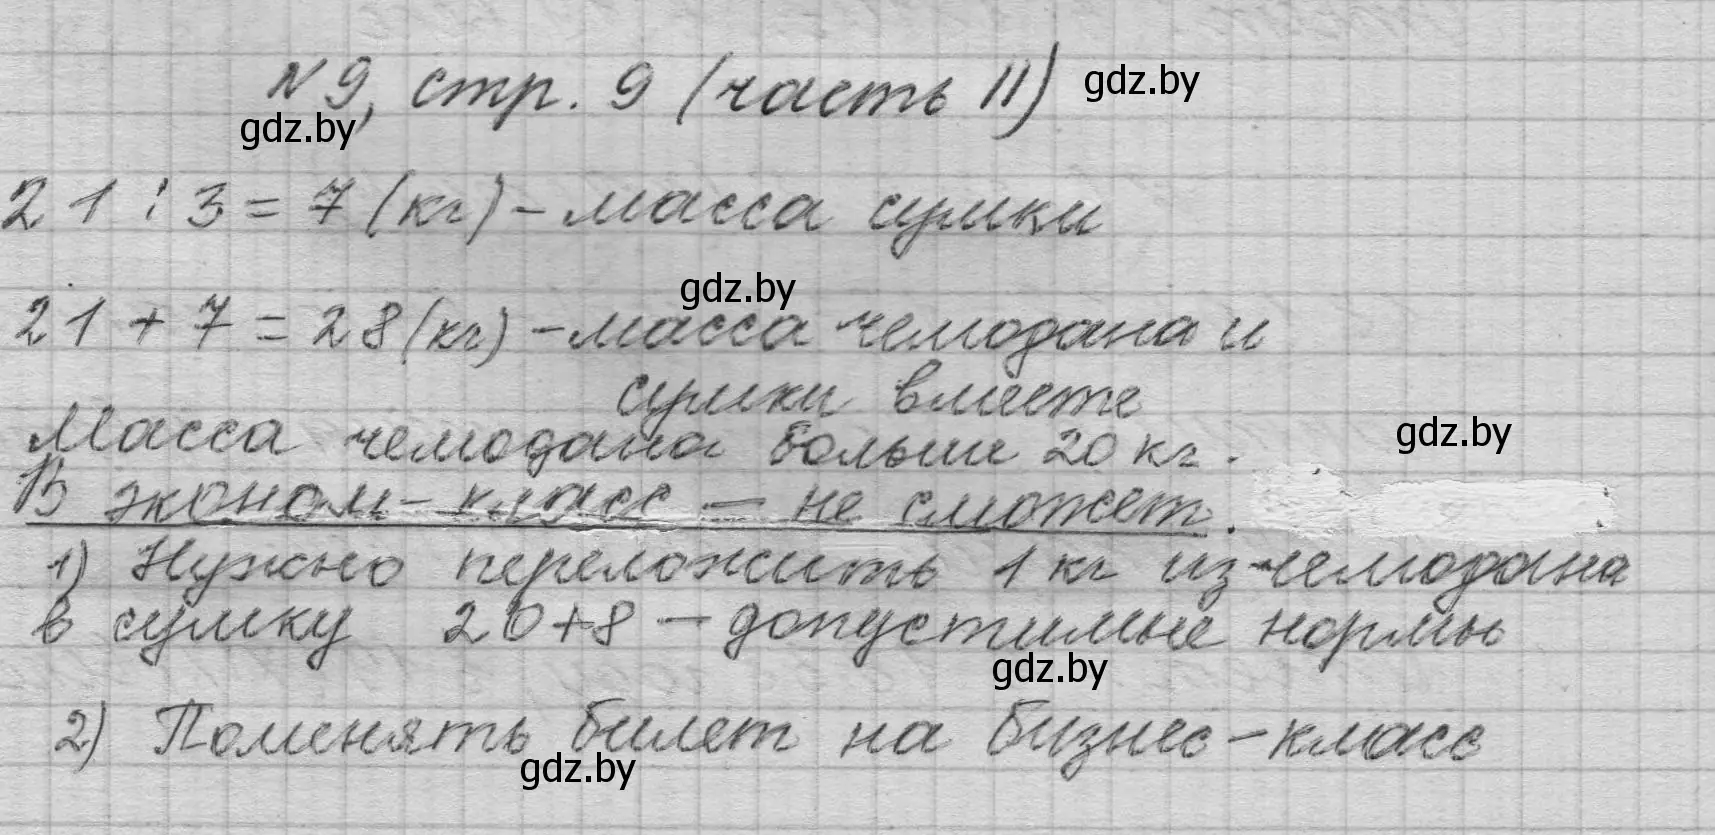 №9, стр. 9 (часть II) gdz.by
gdz.by
21 : 3 = 7 (кг) - масса сумки
gdz.by
21 + 7 = 28 (кг) - масса чемодана и
сумки вместе
Масса чемодана больше 20 кг. gdz.by
В эконом-класс - не сможет.
1) Нужно переложить 1 кг из чемодана
в сумку 20+8 - допустимые нормы
gdz.by
2) Поменять билет на бизнес-класс
gdz.by